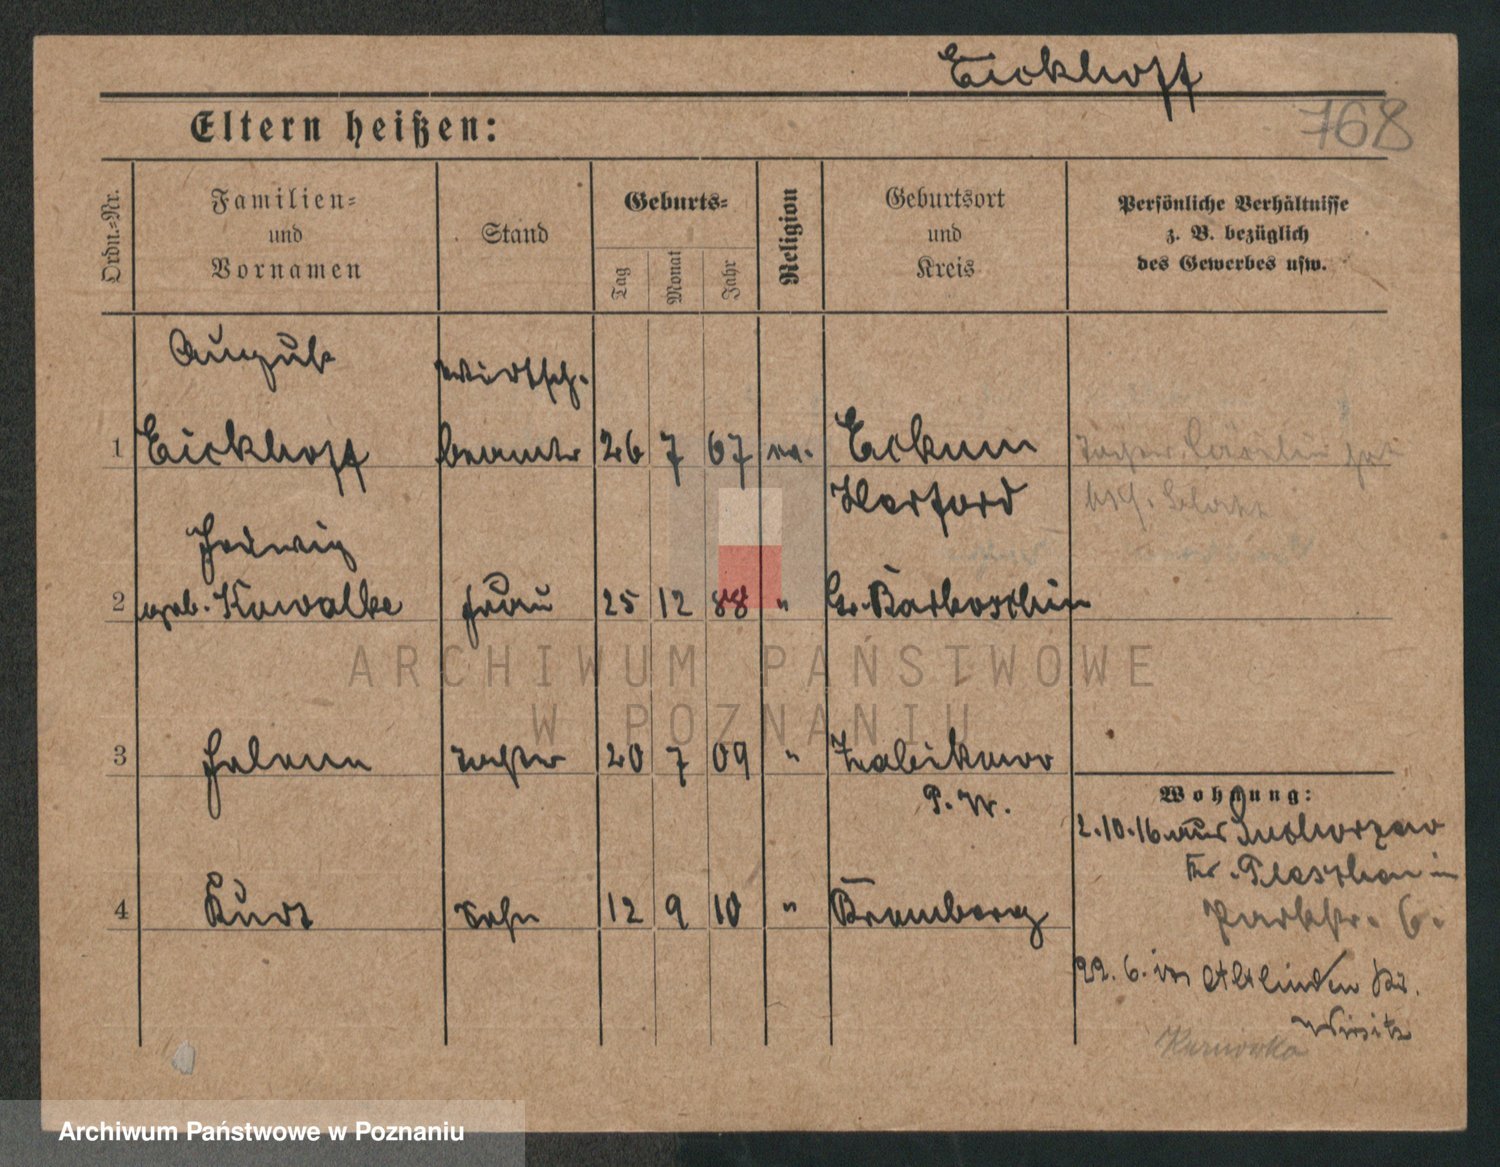 Eickhoff
768
Eltern heißen:
Ordn.-Nr.
Familien-
und
Vornamen
Stand
Geburts-
Tag
Monat
Jahr
Religion
Geburtsort
und
Kreis
Persönliche Verhältnisse
z. B. bezüglich
des Gewerbes usw.
August
wirtsch.
1 Eickhoff beamter 26 7 67 ev. Eckum
Herford
Hedwig
2 geb. Kawalke Frau 25 12 88 " Gr. Bartoschin
3 Helene Tochter 20 7 09 " Zabikowo
P. W.
4 Kurt Sohn 12 9 10 " Bromberg
Wohnung:
2.10.16
Kr. Pleschen in
Parkstr. 6.
22. 6. Altlinden Kr.
Wirsitz
ARCHIWUM PAŃSTWOWE
W POZNANIU
Archiwum Państwowe w Poznaniu